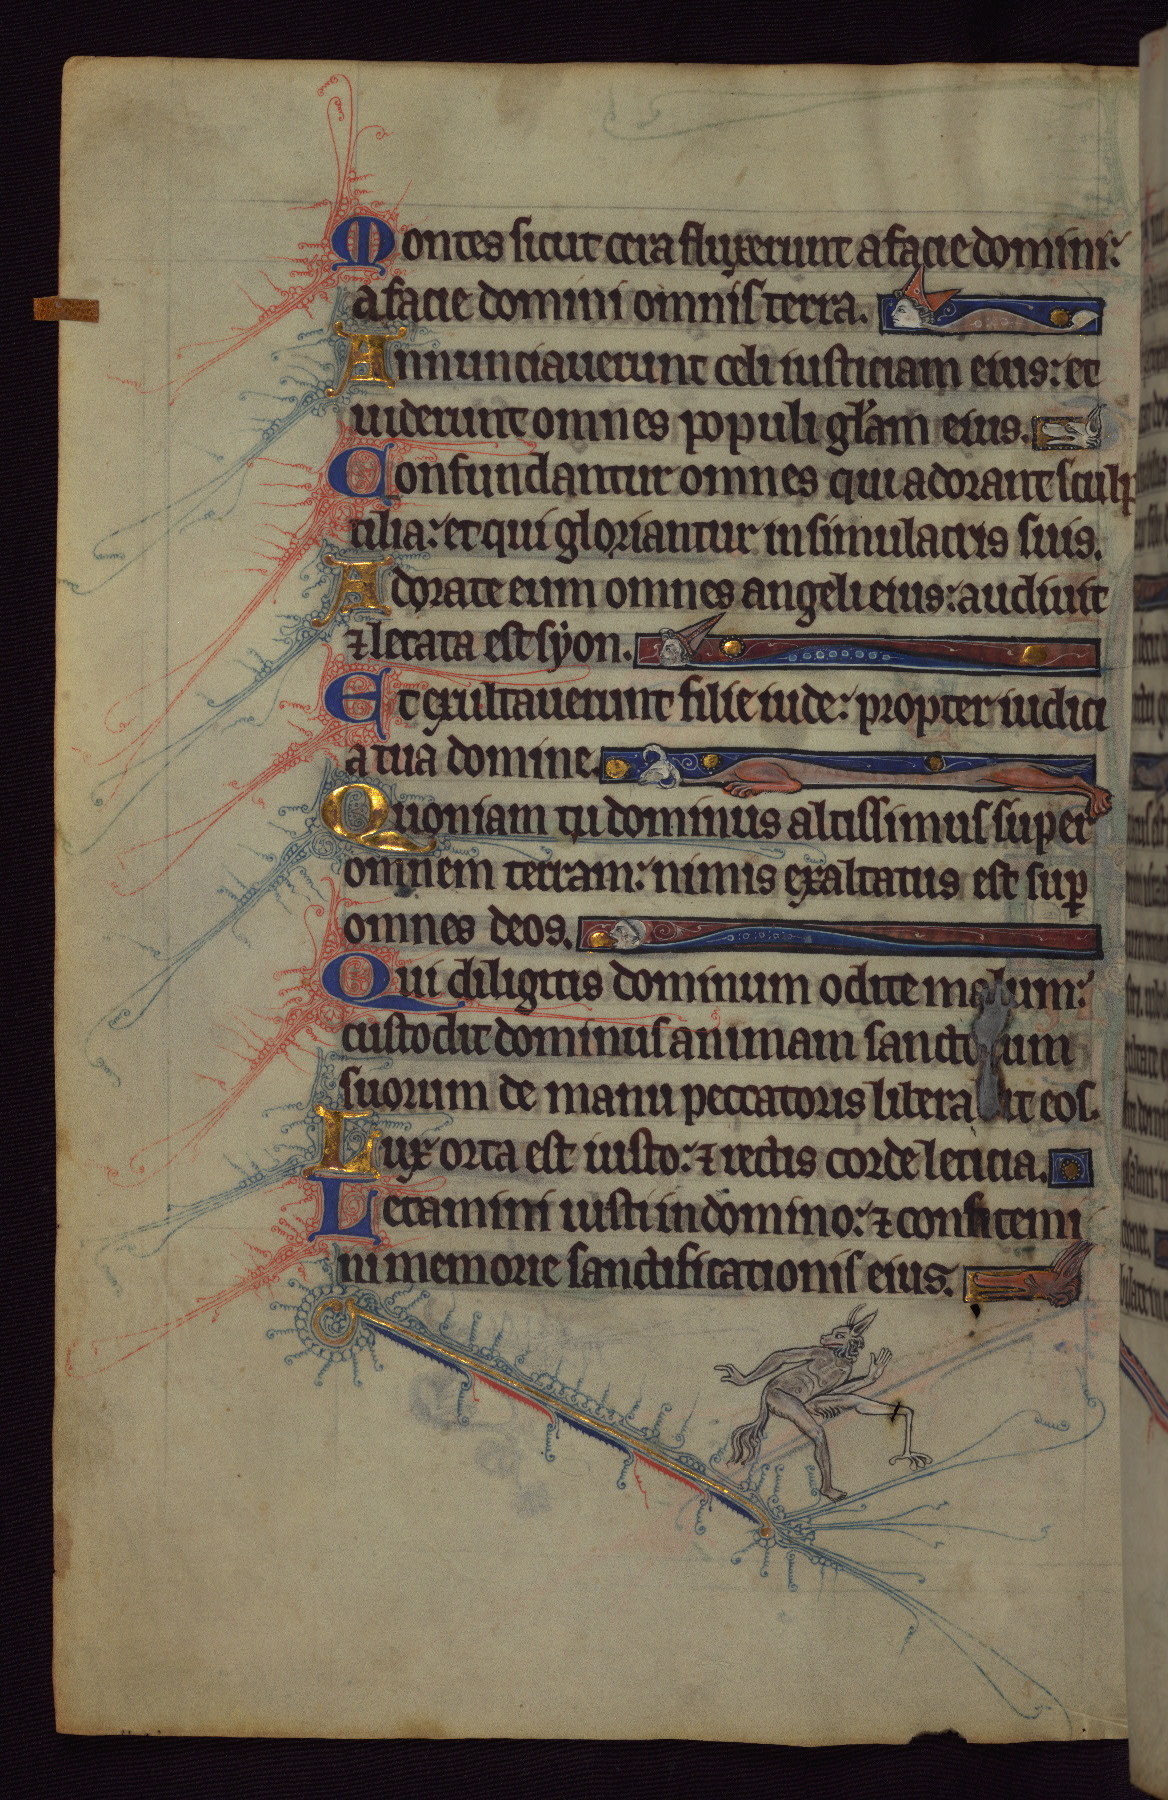 Montes sicut cera fluxerunt a facie domini:
a facie domini omnis terra.
Annunciauerunt celi iusticiam eius: et
uiderunt omnes populi gl'am eius.
Confundantur omnes qui adorant sculp
tilia: et qui gloriantur in simulacris suis.
Adorate eum omnes angeli eius: audiuit
⁊ letata est syon.
Et exultauerunt filie iude: propter iudici
a tua domine.
Quoniam tu dominus altissimus super
omnem terram: nimis exaltatus est suꝑ
omnes deos.
Qui diligitis dominum odite malum:
custodit dominus animam sanctorum
suorum de manu peccatoris liberabit eos.
Lux orta est iusto: ⁊ rectis corde leticia.
Letamini iusti in domino: ⁊ confitemi
ni memorie sanctificationis eius.